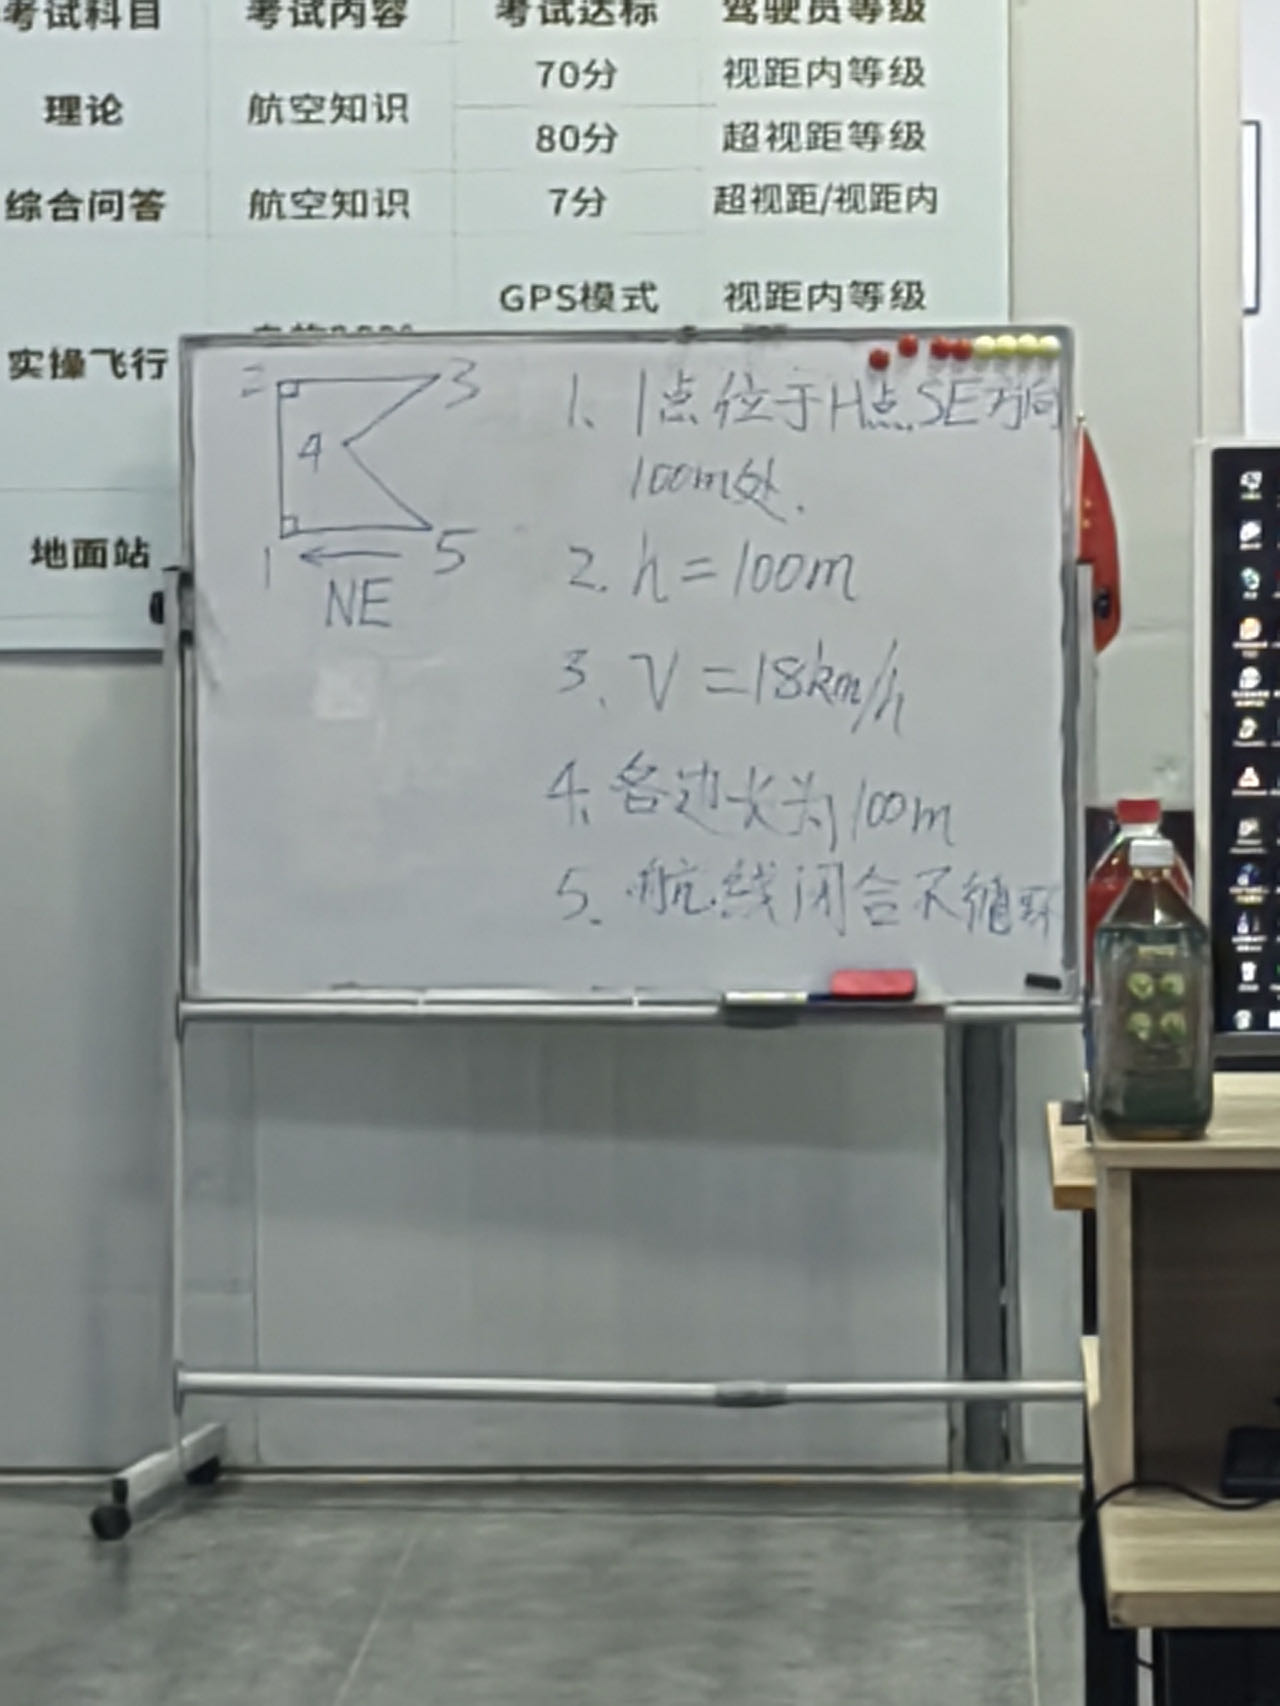 考试科目 考试内容 考试达标 驾驶员等级
理论 航空知识 70分 视距内等级
80分 超视距等级
综合问答 航空知识 7分 超视距/视距内
GPS模式 视距内等级
实操飞行
地面站
2 3
4
1 5
NE
1、1点位于H点SE方向
100m处.
2. h=100m
3、V=18km/h
4、各边长为100m
5、航线闭合不循环